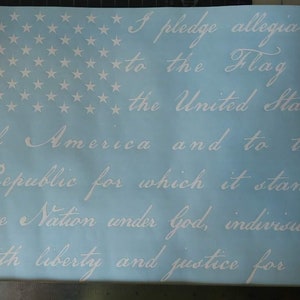 I pledge allegia
to the Flag
the United Sta
f America and to t
Republic for which it stan
e Nation under God, indivisi
th liberty and justice for